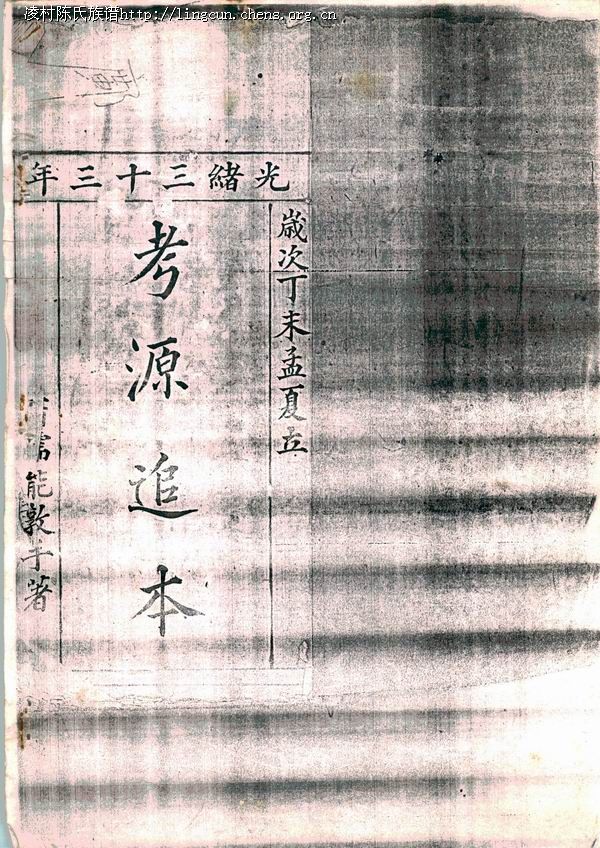 凌村陈氏族谱http://lingcun.chens.org.cn
光緒三十三年
歲次丁未孟夏立
考源追本
能敦手著